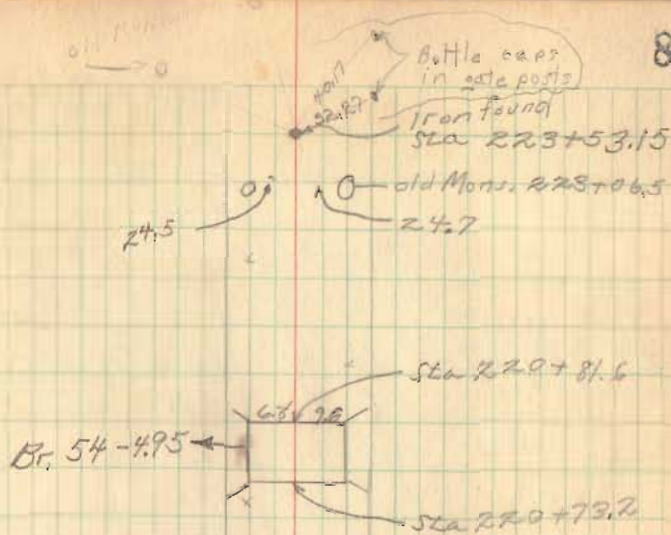 8
old Monument
Bottle caps
in gate posts
40.17
32.27
Iron found
Sta 223+53.15
old Mons. 223+06.5
24.5
24.7
Sta 220+81.6
Br. 54-4.95
Sta 220+73.2